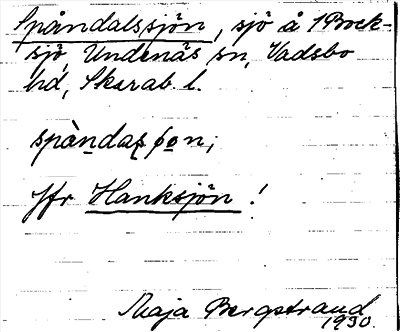 Spåndalssjön, sjö å 1 Bock-
sjö, Undenäs sn, Vadsbo
hd, Skarab. l.
Jfr Hanksjön!
Maja Bergstrand
1930